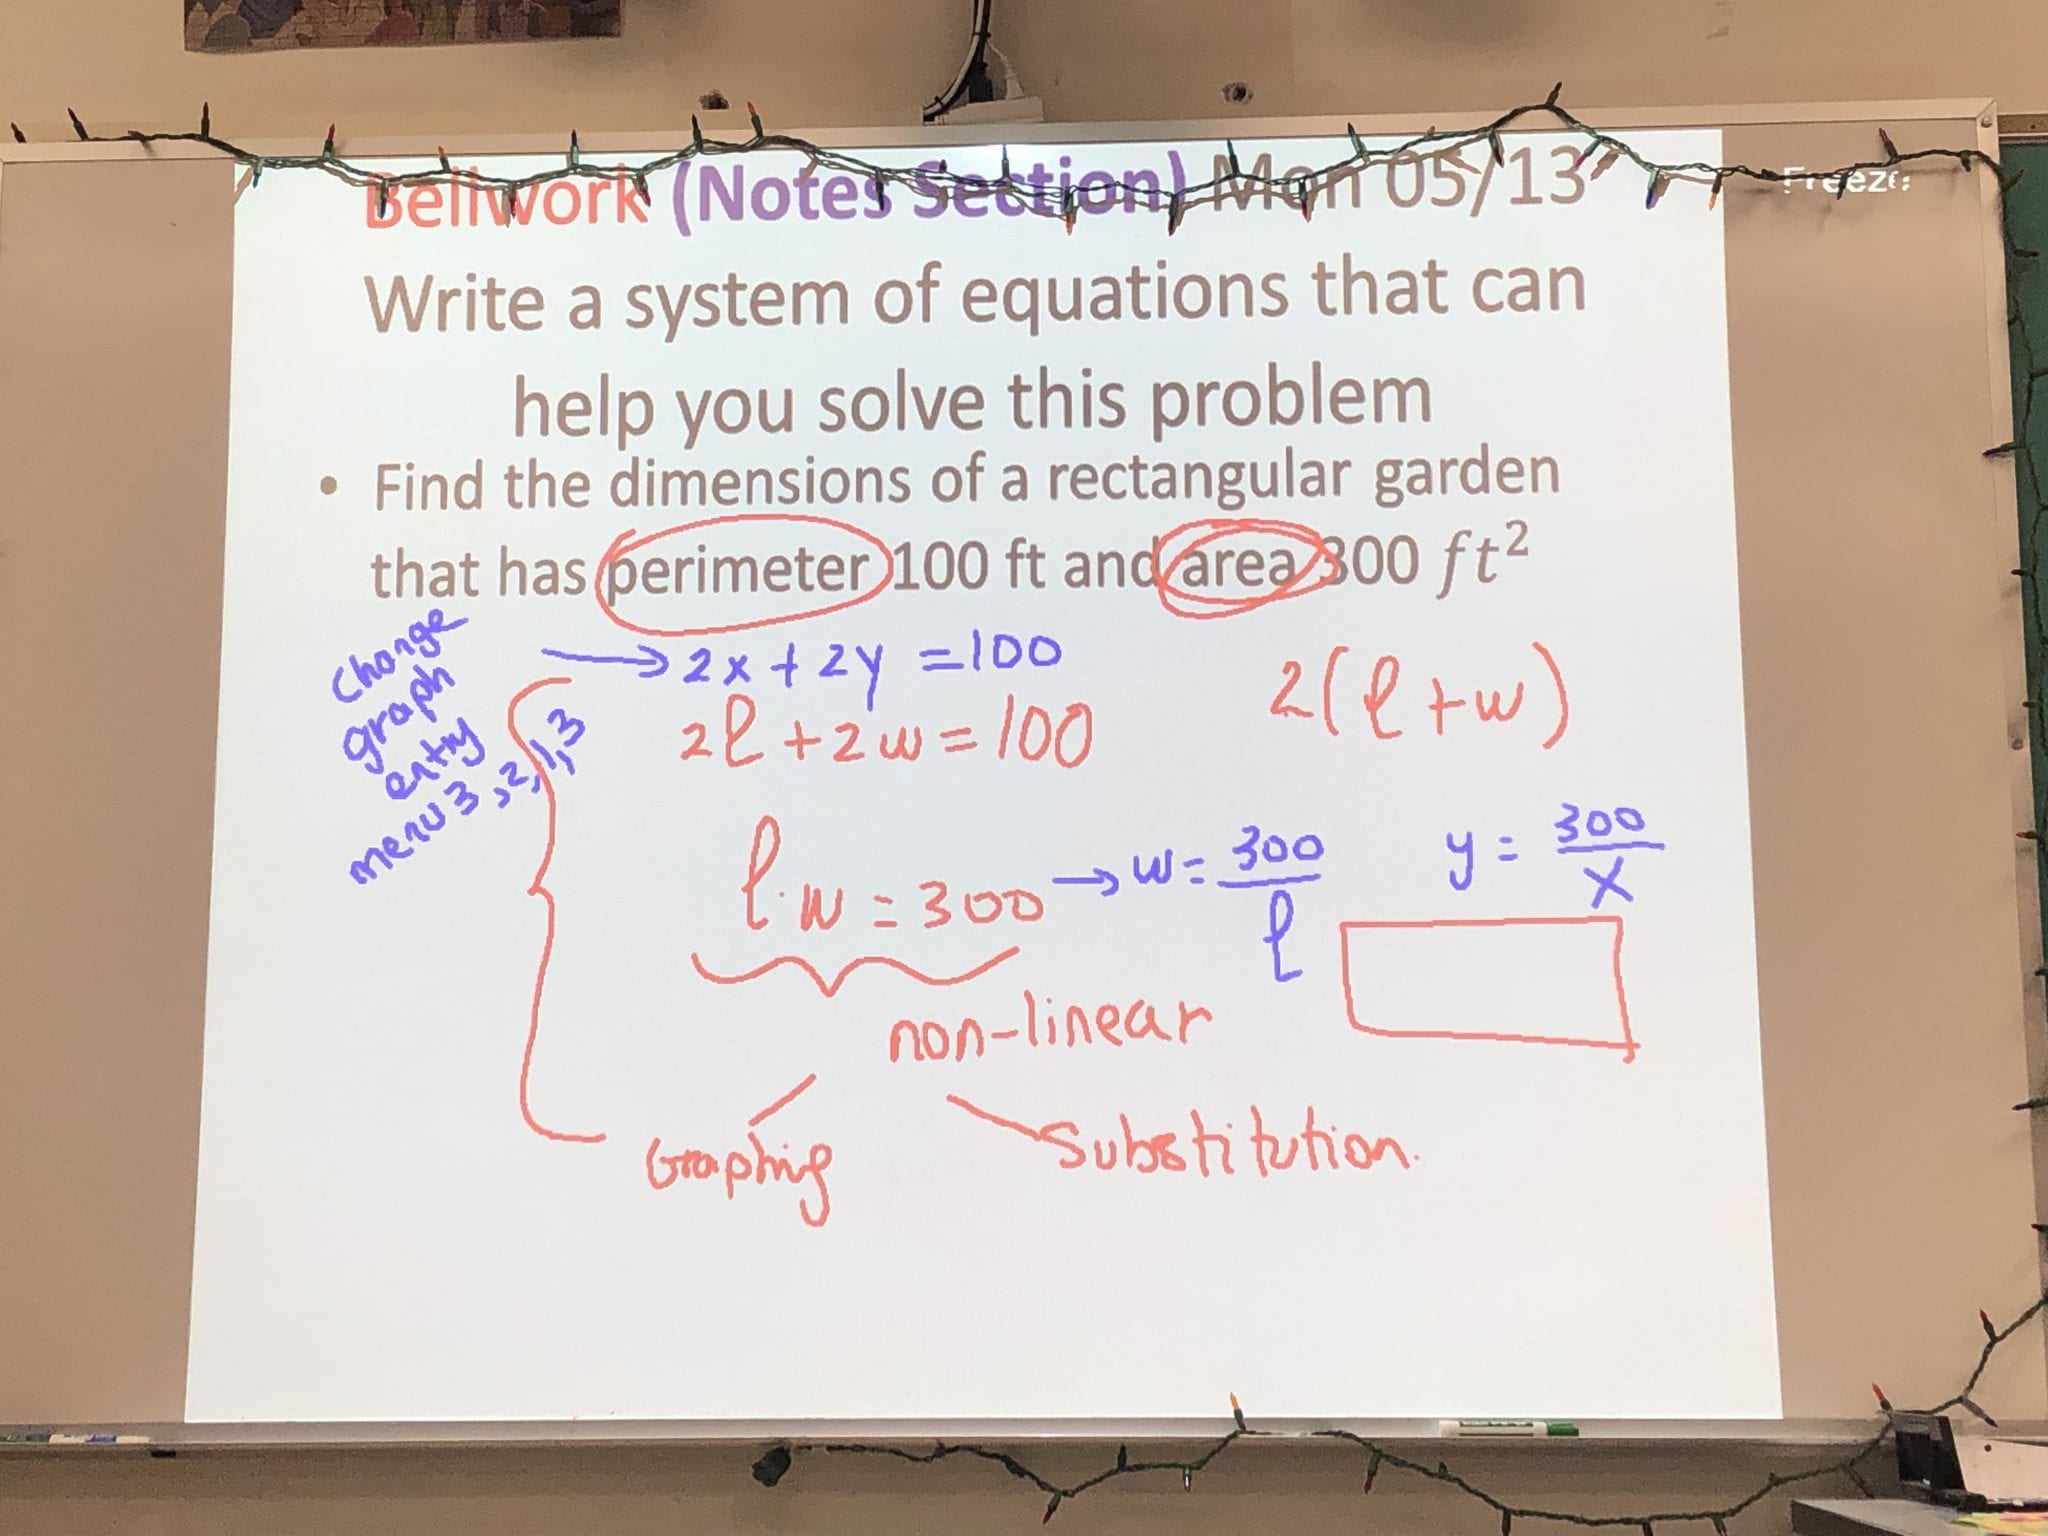 Bellwork (Notes Section) Mon 05/13
Freeze
Write a system of equations that can
help you solve this problem
• Find the dimensions of a rectangular garden
that has perimeter 100 ft and area 300 ft²
Change
graph
entry
menu 3,2,1,3
→ 2x + 2y = 100
2ℓ + 2w = 100
2(ℓ + w)
ℓ·w = 300 → w = 300/ℓ
y = 300/x
non-linear
Graphing
Substitution.